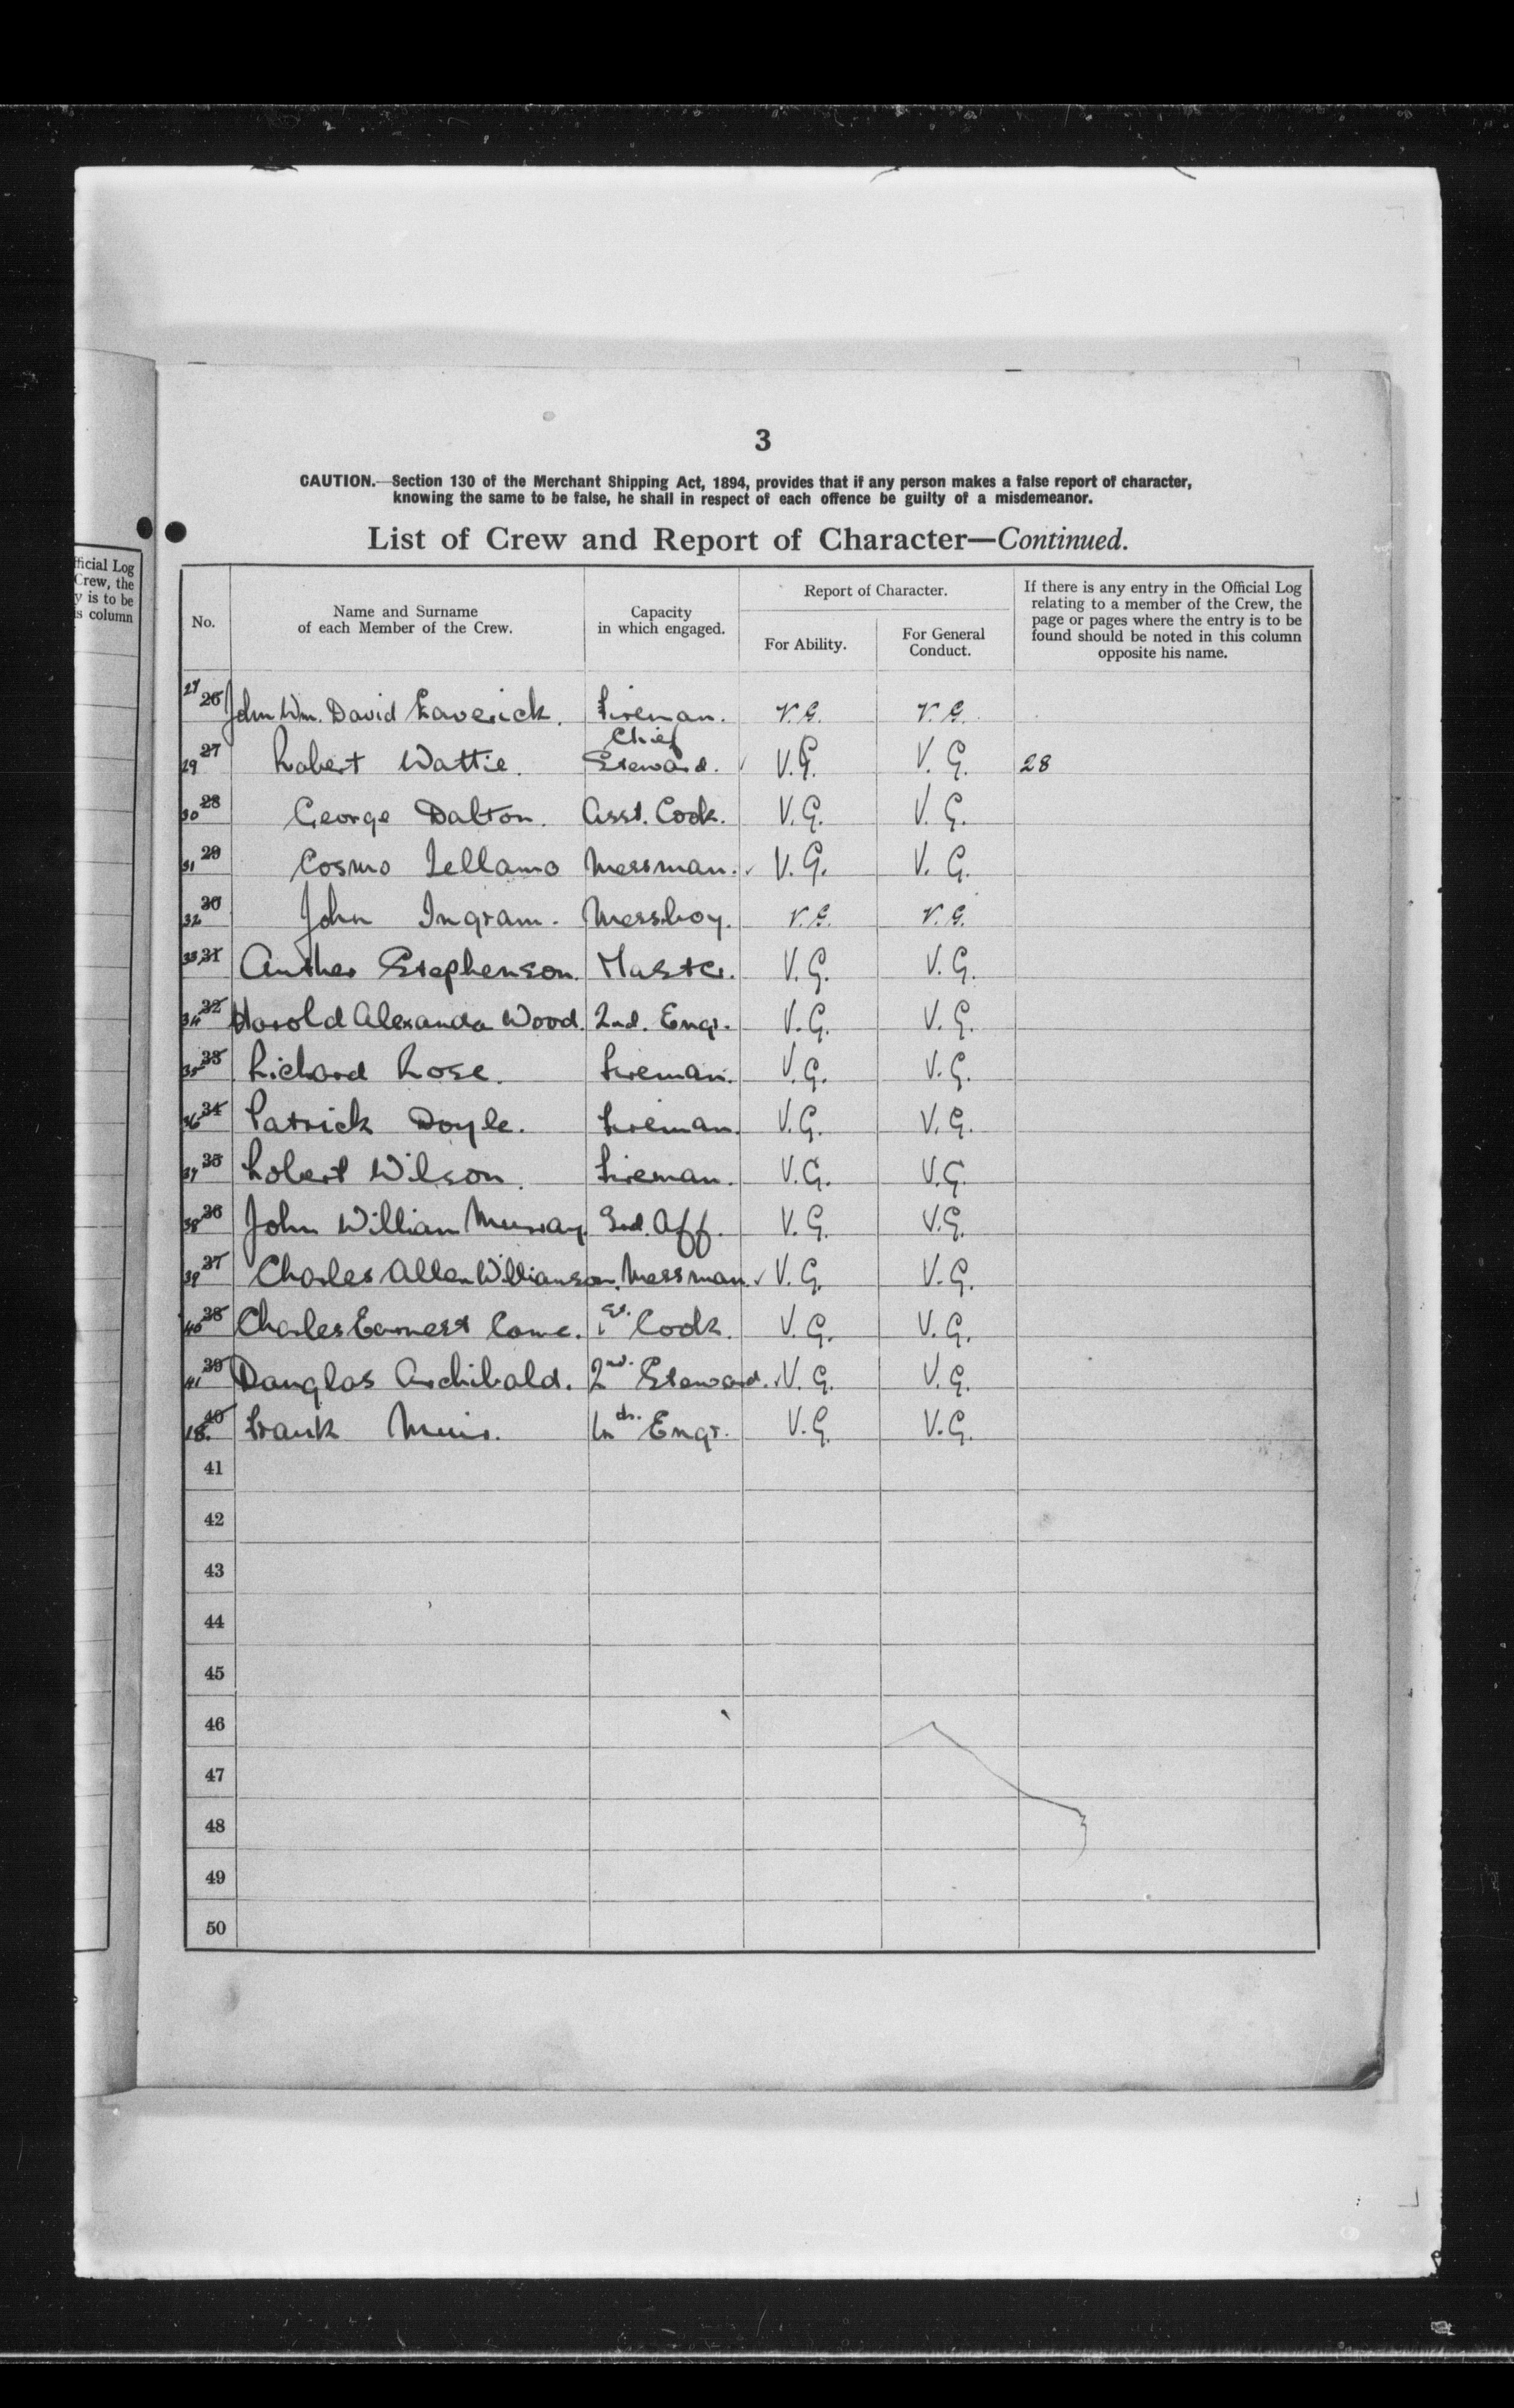 3
CAUTION.—Section 130 of the Merchant Shipping Act, 1894, provides that if any person makes a false report of character,
knowing the same to be false, he shall in respect of each offence be guilty of a misdemeanor.
List of Crew and Report of Character—Continued.
fficial Log
Crew, the
y is to be
is column
No.
Name and Surname
of each Member of the Crew.
Capacity
in which engaged.
Report of Character.
For Ability.
For General
Conduct.
If there is any entry in the Official Log
relating to a member of the Crew, the
page or pages where the entry is to be
found should be noted in this column
opposite his name.
26 John Wm. David Fireman. V.G. V.G.
29 27 Robert Wattie. Chief Steward. V.G. V.G. 28
30 28 George Dalton. Asst. Cook. V.G. V.G.
31 29 Cosmo Messman. V.G. V.G.
32 30 John Ingram. Messboy. V.G. V.G.
33 31 Stephenson. Master. V.G. V.G.
34 32 Harold Wood. 2nd. Engr. V.G. V.G.
35 33 Richard Rose. Fireman. V.G. V.G.
36 34 Patrick Doyle. Fireman. V.G. V.G.
37 35 Robert Wilson. Fireman. V.G. V.G.
38 36 John William Murray. V.G. V.G.
39 37 Charles Allen Williamson. Messman. V.G. V.G.
40 38 Charles 1st. Cook. V.G. V.G.
41 39 Douglas Archibald. 2nd. Steward. V.G. V.G.
18. 40 Frank Muir. 4th. Engr. V.G. V.G.
41
42
43
44
45
46
47
48
49
50